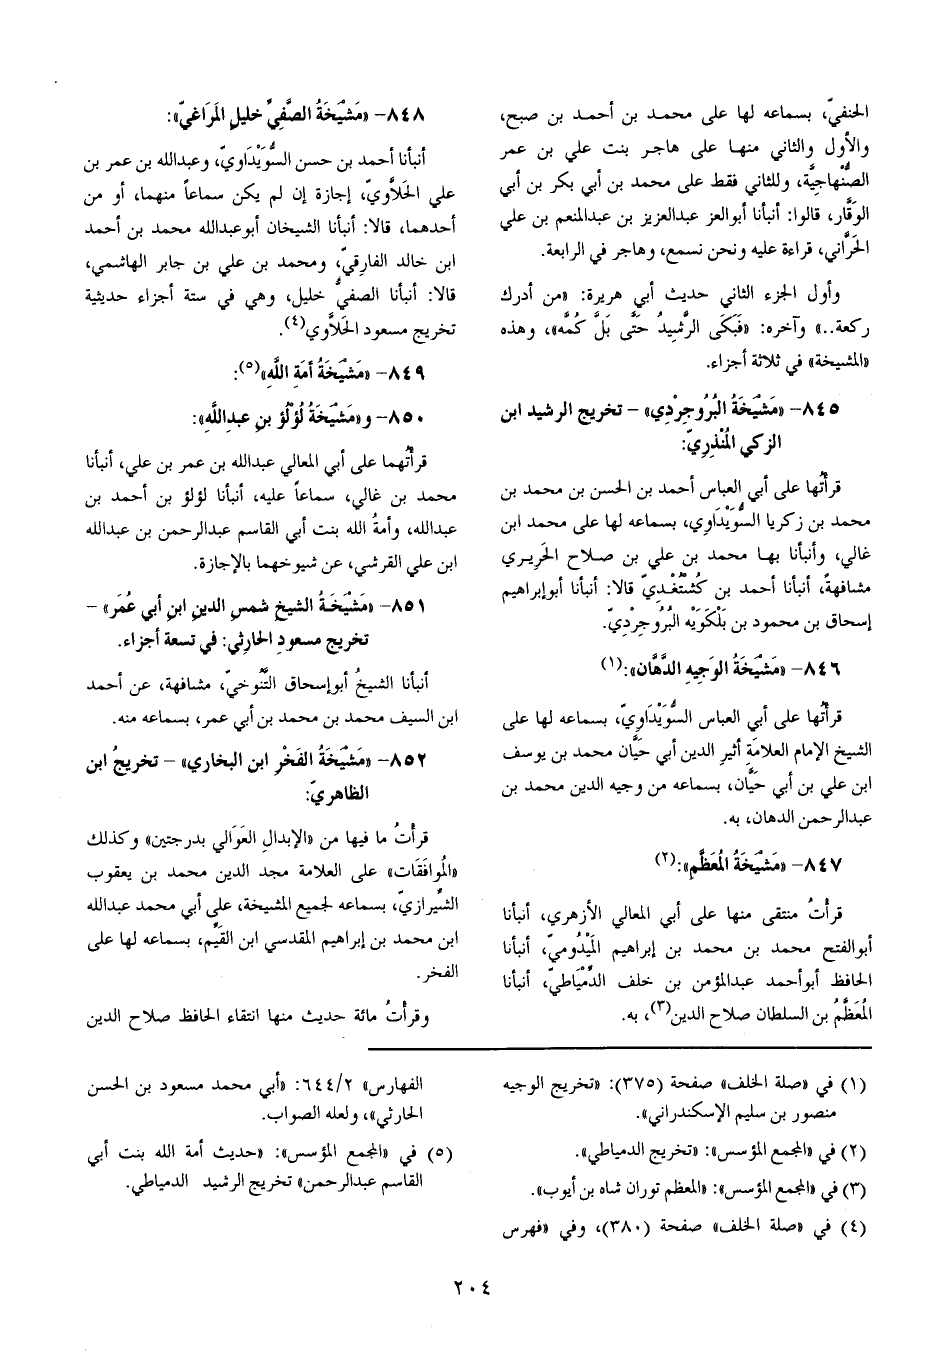 الحنفيّ، بسماعه لها على محمد بن أحمد بن صبح،
والأول والثاني منها على هاجر بنت علي بن عمر
الصُّنْهاجيَّة، وللثاني فقط على محمد بن أبي بكر بن أبي
الوَقَّار، قالوا: أنبأنا أبوالعز عبدالعزيز بن عبدالمنعم بن علي
الحَرَّاني، قراءة عليه ونحن نسمع، وهاجر في الرابعة.
وأول الجزء الثاني حديث أبي هريرة: «من أدرك
ركعة..» وآخره: «فَبَكَى الرَّشيدُ حَتَّى بَلَّ كُمَّه»، وهذه
«المشيخة» في ثلاثة أجزاء.
٨٤٥- «مَشْيَخَةُ البُرُوجِرْدِي» - تخريج الرشيد ابن
الزكي المُنْذِرِيّ:
قرأتُها على أبي العباس أحمد بن الحسن بن محمد بن
محمد بن زكريا السُّوَيْدَاوِي، بسماعه لها على محمد ابن
غالي، وأنبأنا بها محمد بن علي بن صلاح الحَرِيري
مشافهةً، أنبأنا أحمد بن كُشْتُغْدِيّ قالا: أنبأنا أبوإبراهيم
إسحاق بن محمود بن بَلْكَوَيْه البُرُوجِرْدِيّ.
٨٤٦- «مَشْيَخَةُ الوَجيهِ الدَّهَّان»:(١)
قرأتُها على أبي العباس السُّوَيْدَاوِيّ، بسماعه لها على
الشيخ الإمام العلامَةِ أثيرِ الدين أبي حَيَّان محمد بن يوسف
ابن علي بن أبي حَيَّان، بسماعه من وجيه الدين محمد بن
عبدالرحمن الدهان، به.
٨٤٧- «مَشْيَخَةُ المُعَظَّم»:(٢)
قرأتُ منتقى منها على أبي المعالي الأزهري، أنبأنا
أبوالفتح محمد بن محمد بن إبراهيم المَيْدُوميّ، أنبأنا
الحافظ أبوأحمد عبدالمؤمن بن خلف الدِّمْيَاطيّ، أنبأنا
المُعَظَّمُ بن السلطان صلاح الدين(٣)، به.
٨٤٨- «مَشْيَخَةُ الصَّفِيِّ خليلِ المَرَاغيّ»:
أنبأنا أحمد بن حسن السُّوَيْدَاويّ، وعبدالله بن عمر بن
علي الحَلاَّويّ، إجازة إن لم يكن سماعاً منهما، أو من
أحدهما، قالا: أنبأنا الشيخان أبوعبدالله محمد بن أحمد
ابن خالد الفارقيّ، ومحمد بن علي بن جابر الهاشمي،
قالا: أنبأنا الصفيُّ خليل، وهي في ستة أجزاء حديثية
تخريج مسعود الحَلاَّوي(٤).
٨٤٩- «مَشْيَخَةُ أمَةِ اللَّهِ»(٥):
٨٥٠- و«مَشْيَخَةُ لُؤْلُؤِ بنِ عبدِاللَّهِ»:
قرأتُهما على أبي المعالي عبدالله بن عمر بن علي، أنبأنا
محمد بن غالي، سماعاً عليه، أنبأنا لؤلؤ بن أحمد بن
عبدالله، وأمةُ الله بنت أبي القاسم عبدالرحمن بن عبدالله
ابن علي القرشي، عن شيوخهما بالإجازة.
٨٥١- «مَشْيَخَةُ الشيخِ شمسِ الدينِ ابنِ أبي عُمَر» -
تخريج مسعودِ الحارثي: في تسعة أجزاء.
أنبأنا الشيخُ أبوإسحاق التَّنُوخيّ، مشافهة، عن أحمد
ابن السيف محمد بن محمد بن أبي عمر، بسماعه منه.
٨٥٢- «مَشْيَخَةُ الفَخْرِ ابن البخاري» - تخريجُ ابن
الظاهريّ:
قرأتُ ما فيها من «الإبدالِ العَوَالي بدرجتين» وكذلك
«المُوافَقَات» على العلامة مجد الدين محمد بن يعقوب
الشِّيرازيّ، بسماعه لجميع المشيخة، على أبي محمد عبدالله
ابن محمد بن إبراهيم المقدسي ابن القَيِّم، بسماعه لها على
الفخر.
وقرأتُ مائة حديث منها انتقاء الحافظ صلاح الدين
(١) في «صلة الخلف» صفحة (٣٧٥): «تخريج الوجيه
منصور بن سليم الإسكندراني».
(٢) في «المجمع المؤسس»: «تخريج الدمياطي».
(٣) في «المجمع المؤسس»: «المعظم توران شاه بن أيوب».
(٤) في «صلة الخلف» صفحة (٣٨٠)، وفي «فهرس
الفهارس» ٦٤٤/٢: «أبي محمد مسعود بن الحسن
الحارثي»، ولعله الصواب.
(٥) في «المجمع المؤسس»: «حديث أمة الله بنت أبي
القاسم عبدالرحمن» تخريج الرشيد الدمياطي.
٢٠٤